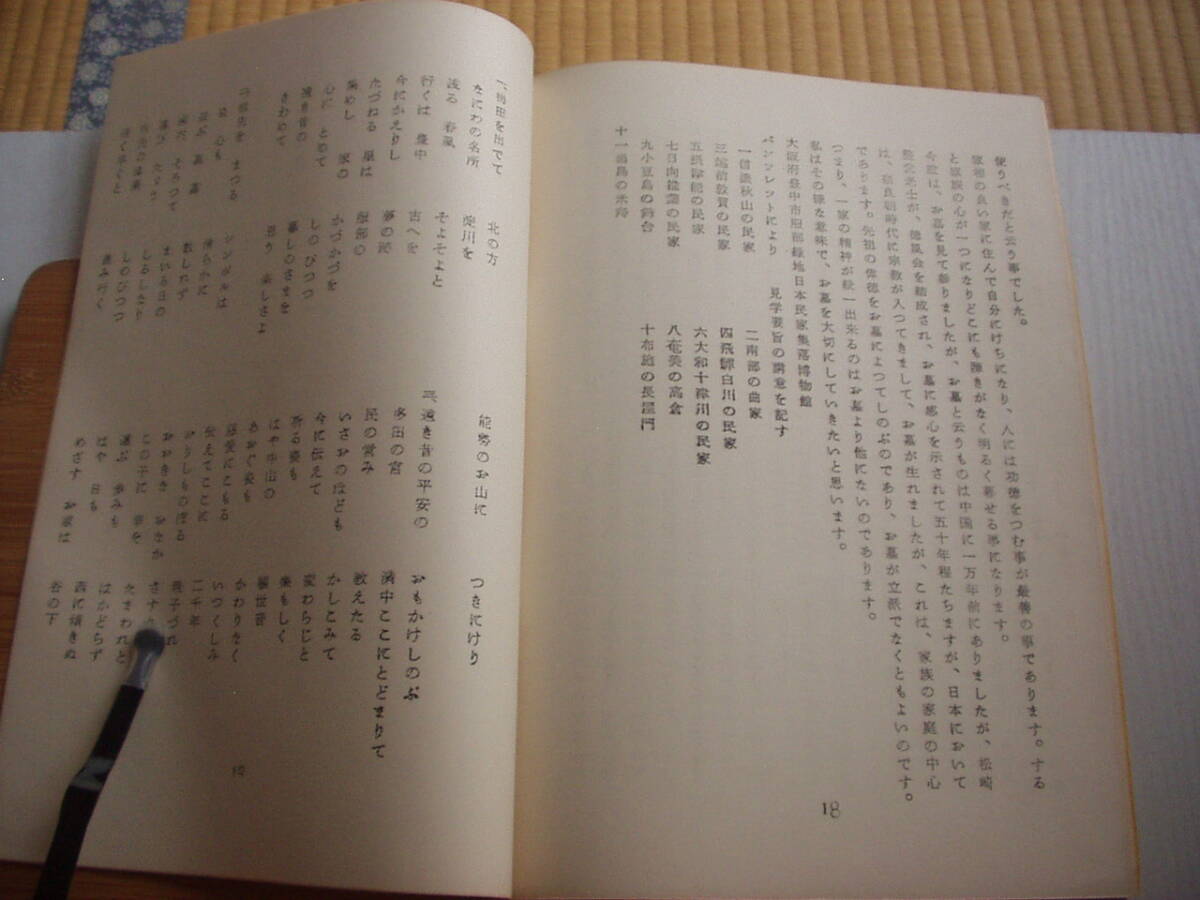 使うべきだと云う事でした。
家相の良い家に住んで自分にけちになり、人には功徳をつむ事が最善の事であります。する
と家族の心が一つになりどこにも嘆きがなく明るく暮せる事になります。
今度は、お墓を見て参りましたが、お墓と云うものは中国に一万年前にありましたが、松崎
整交先生が、徳風会を結成され、お墓に感心を示されて五十年程たちますが、日本において
は、奈良朝時代に宗教が入つてきまして、お墓が生れましたが、これは、家族の家庭の中心
であります。先祖の偉徳をお墓によつてしのぶのであり、お墓が立派でなくともよいのです。
つまり、一家の精神が統一出来るのはお墓より他にないのであります。
私はその様な意味で、お墓を大切にしていきたいと思います。
大阪府豊中市服部緑地日本民家集落博物館
パンフレットにより 見学要旨の講意を記す
一信濃秋山の民家 二南部の曲家
三越前敦賀の民家 四飛騨白川の民家
五摂津能の民家 六大和十津川の民家
七日向椎葉の民家 八奄美の高倉
九小豆島の舞台 十布施の長屋門
十一
18
梅田を出でて 北の方
なにわの名所 淀川を
渡る 春風 そよそよと
行くは 豊中
今にかえりし 古へを
たづねる 扉は 夢の民
集めし 家の 服部の
心に とめて かづかづを
遠き昔の しのびつつ
きわめて 暮しのさまを
思う 楽しさよ
祖先を まつる シンボルは
心も 清らかに
並ぶ 墓 墓 数しれず
そろつて まいる日の
しるしなり
しのびつつ
進み行く
能勢のお山に つきにけり
遠き昔の平安の おもかけしのぶ
多田の宮 満中ここにとどまりて
民の営み 教えたる
いさおのほども かしこみて
今に伝えて 変わらじと
祈る姿も 楽もしく
はや中山の 観世音
あおぐ姿も かわりなく
慈愛にこもる いつくしみ
伝えてここに 二千年
おうしもの住る 親子づれ
おおきき おさか
この子に 幸を たまわれと
運ぶ 歩みも はかどらず
はや 日も 西に傾きぬ
めざす お家は 谷の下
19